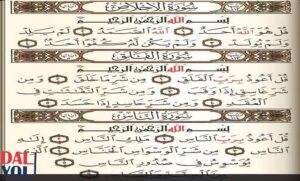 سورة الإخلاص
بسم الله الرحمن الرحيم
قل هو الله أحد ۝ الله الصمد ۝ لم يلد
ولم يولد ۝ ولم يكن له كفوا أحد ۝
سورة الفلق
بسم الله الرحمن الرحيم
قل أعوذ برب الفلق ۝ من شر ما خلق ۝ ومن
شر غاسق إذا وقب ۝ ومن شر النفاثات في
العقد ۝ ومن شر حاسد إذا حسد ۝
سورة الناس
بسم الله الرحمن الرحيم
قل أعوذ برب الناس ۝ ملك الناس ۝ إله
الناس ۝ من شر الوسواس الخناس ۝ الذي
يوسوس في صدور الناس
DAL
YOU